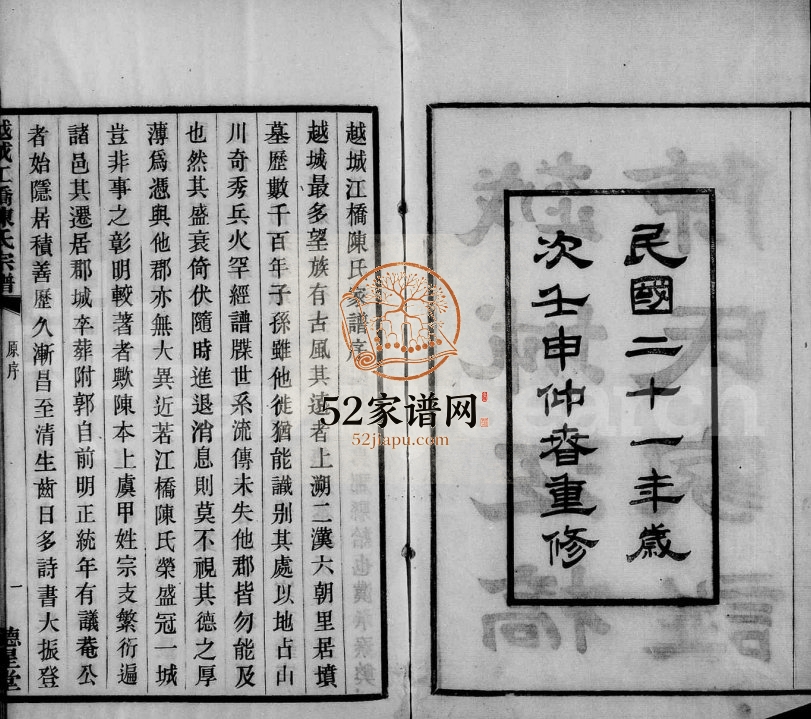 民國二十一年歲
次壬申仲春重修
越城江橋陳氏家譜序
越城最多望族有古風其遠者上溯二漢六朝里居墳
墓歷數千百年子孫雖他徙猶能識别其處以地占山
川奇秀兵火罕經譜牒世系流傳未失他郡皆勿能及
也然其盛衰倚伏隨時進退消息則莫不視其德之厚
薄爲憑與他郡亦無大異近若江橋陳氏榮盛冠一城
豈非事之彰明較著者歟陳本上虞甲姓宗支繁衍遍
諸邑其遷居郡城卒葬附郭自前明正統年有議菴公
者始隱居積善歷久漸昌至清生齒日多詩書大振登
越城江橋陳氏宗譜
原序
一
德星堂
52家谱网
52jiapu.com